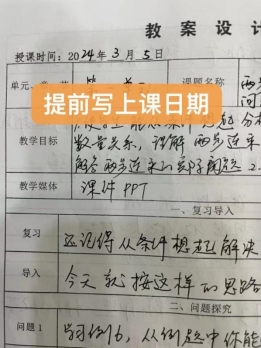 教案设计
授课时间：2024年3月5日
单元、
课题名称
提前写上课日期
教学目标
数量关系，理解两步连乘
解答两步连乘的实际问题 2.
教学媒体
课件 PPT
一、复习导入
复习
还记得从条件想起解决
导入
今天就按这样的思路
二、问题探究
问题1
学习例6，从例题中你能